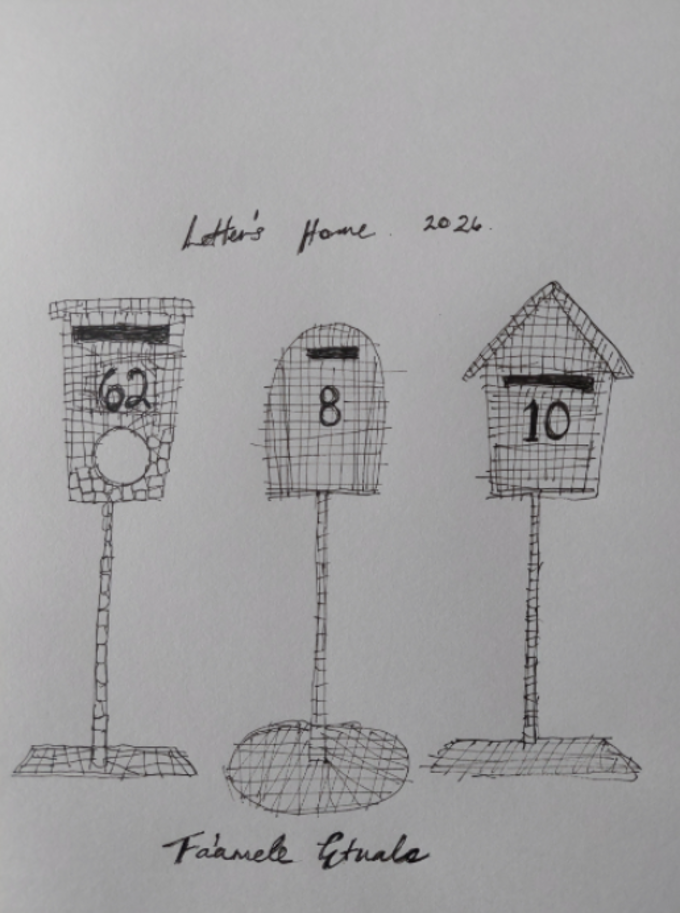 Letter's Home. 2026.
62
8
10
Fa'amele Etuale